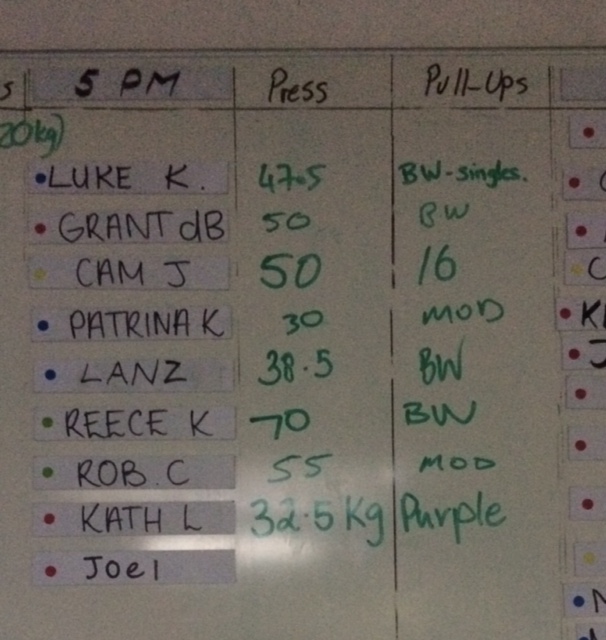 s 5 PM Press Pull-Ups
20kg)
LUKE K. 47.5 BW-singles.
GRANT dB 50 BW
CAM J 50 16
PATRINA K 30 MOD
LANZ 38.5 BW
REECE K 70 BW
ROB.C 55 MOD
KATH L 32.5 Kg Purple
Joel